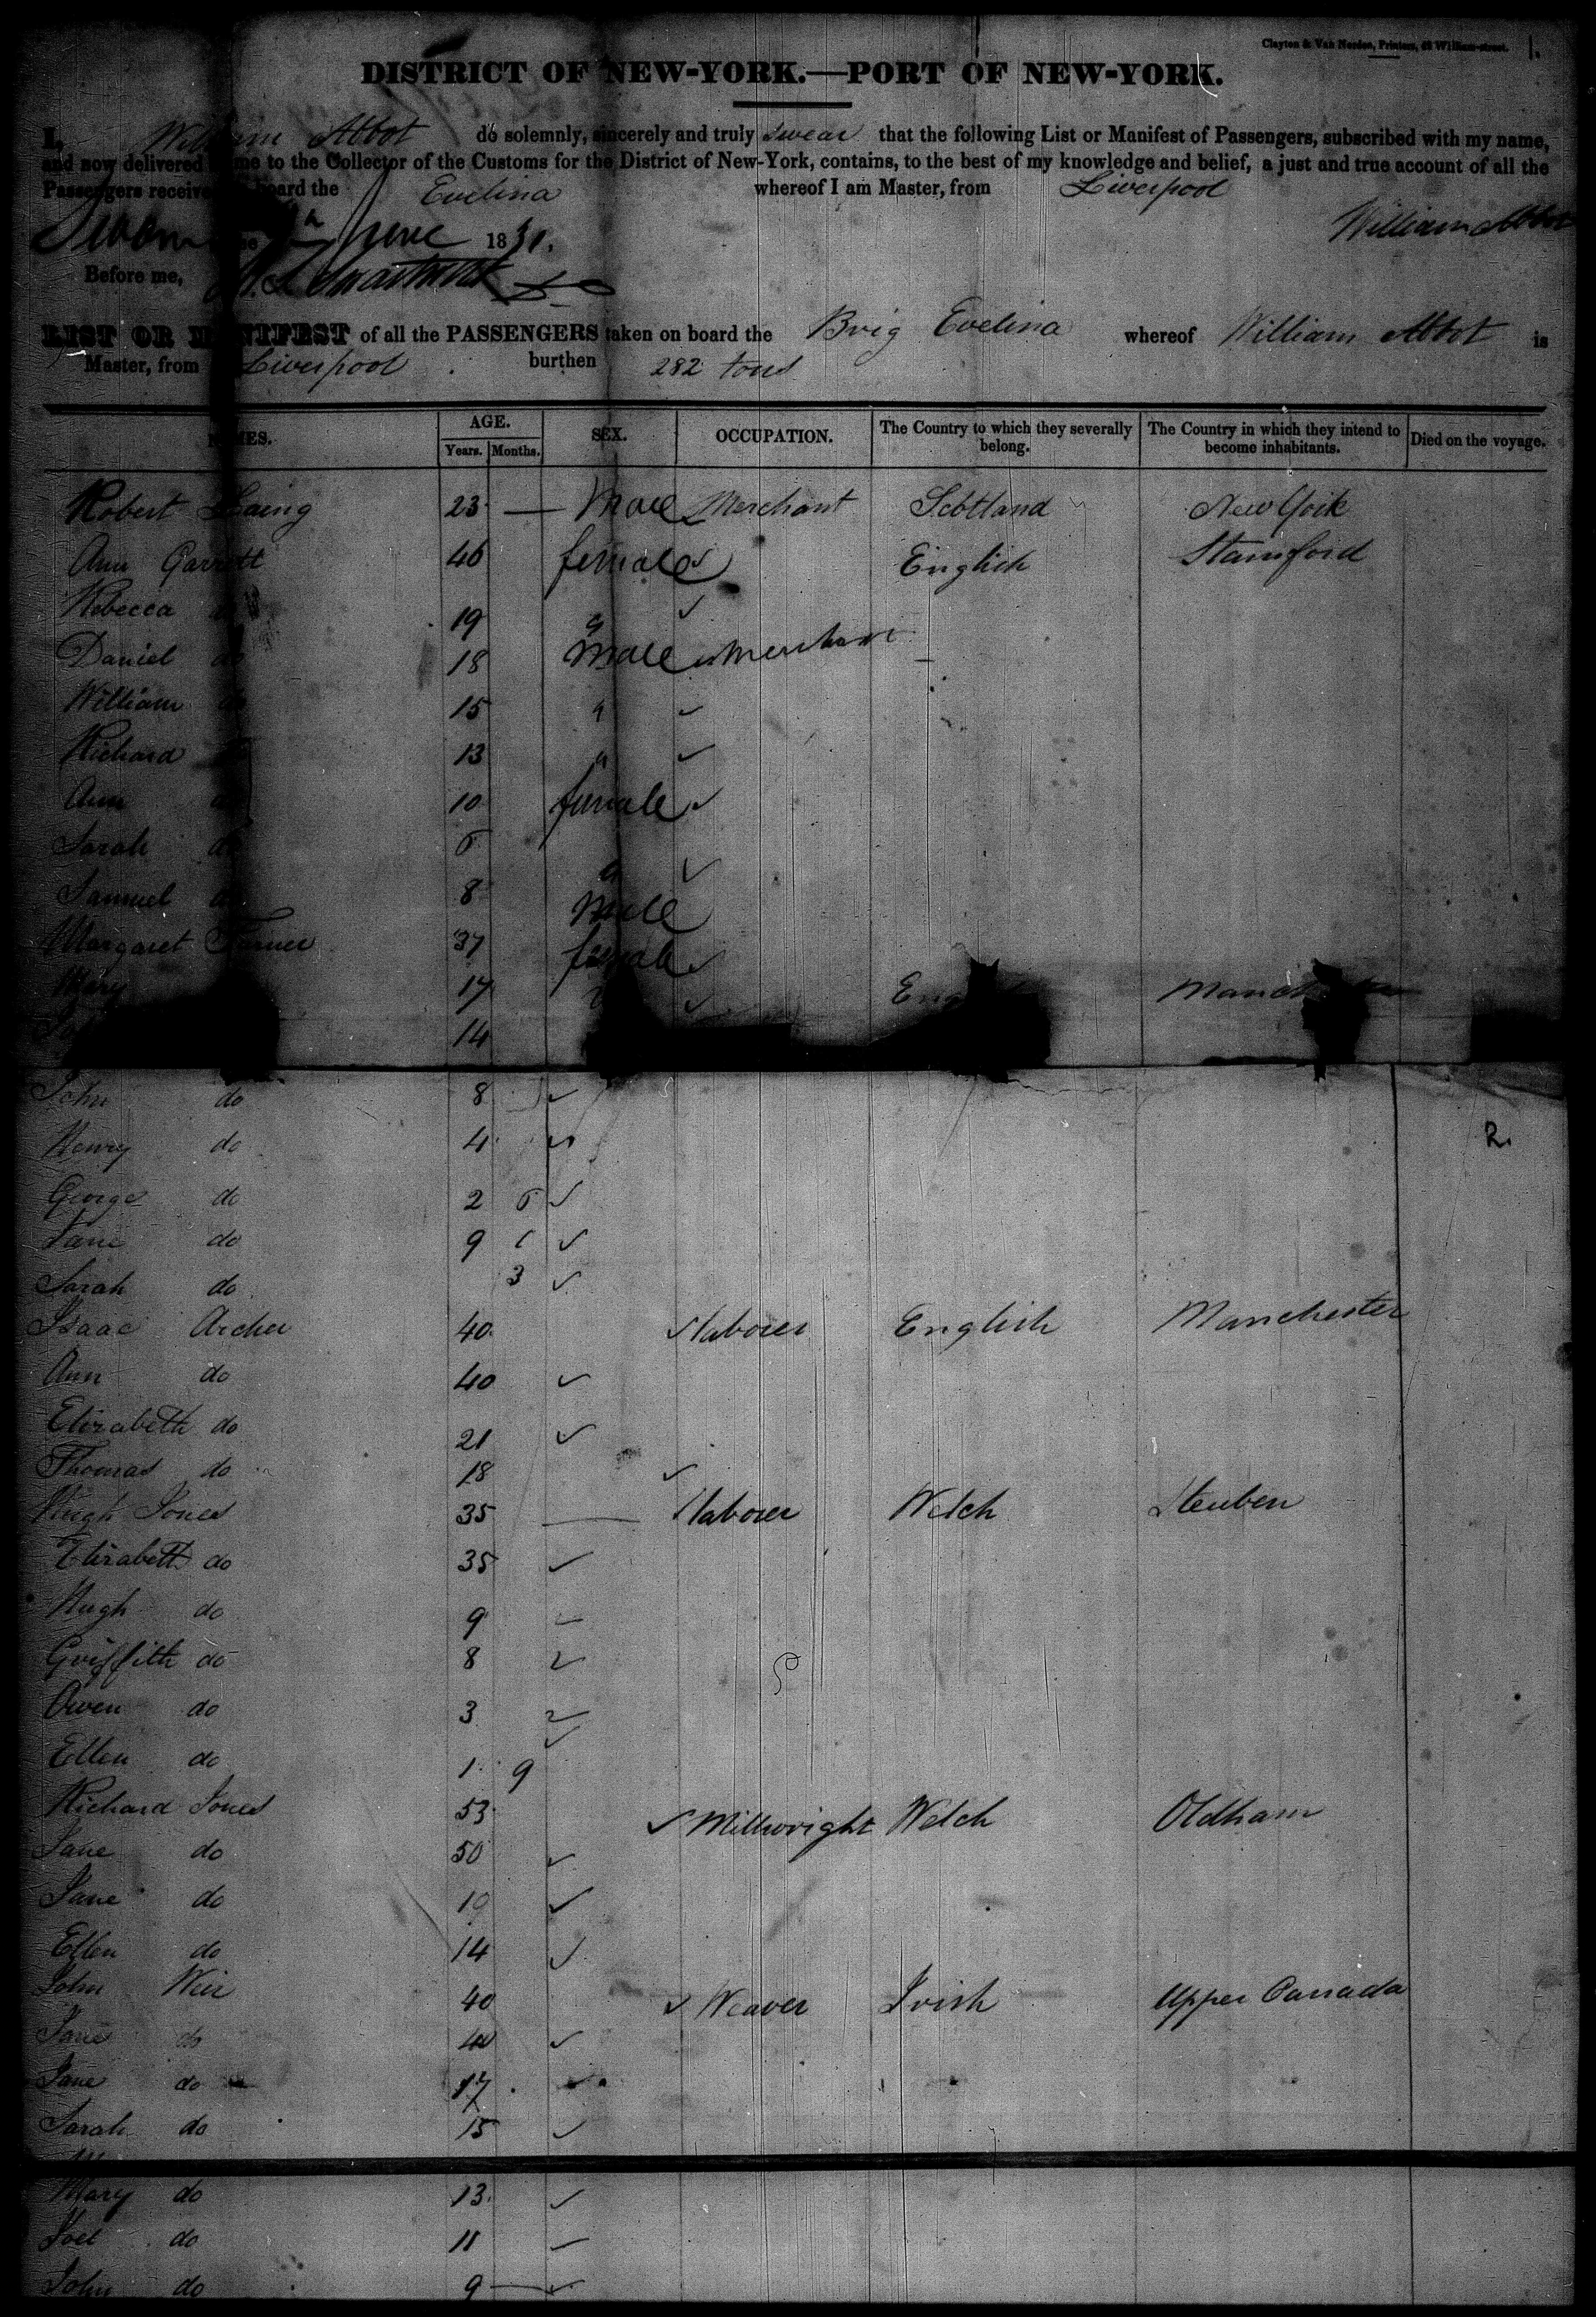 Clayton & Van Norden, Printers, 42 William-street. 1.
DISTRICT OF NEW-YORK.—PORT OF NEW-YORK.
I, William Abbot do solemnly, sincerely and truly swear that the following List or Manifest of Passengers, subscribed with my name,
and now delivered me to the Collector of the Customs for the District of New-York, contains, to the best of my knowledge and belief, a just and true account of all the
Passengers received board the Evelina whereof I am Master, from Liverpool
Sworn June 1831. William Abbot
Before me,
LIST OR MANIFEST of all the PASSENGERS taken on board the Brig Evelina whereof William Abbot is
Master, from Liverpool burthen 282 tons
NAMES. AGE. Years. Months. SEX. OCCUPATION. The Country to which they severally belong. The Country in which they intend to become inhabitants. Died on the voyage.
Robert Laing 23 — Male Merchant Scotland New York
Ann Garrett 46 female English Stamford
Rebecca do 19 "
Daniel do 18 Male Merchant
William do 15 "
Richard 13 "
Ann do 10 female
Sarah do 6 "
Samuel do 8 Male
Margaret Turner 37 female
Mary 17 " Eng Manchester
14
John do 8
Henry do 4 2.
George do 2 6
Jane do 9
Sarah do 3
Isaac Archer 40 laborer English Manchester
Ann do 40
Elizabeth do 21
Thomas do 18
Hugh Jones 35 — laborer Welch Steuben
Elizabeth do 35
Hugh do 9
Griffith do 8
Owen do 3
Ellen do 1 9
Richard Jones 53 Millwright Welch Oldham
Jane do 50
Jane do 19
Ellen do 14
John Weir 40 Weaver Irish Upper Canada
Jane do 40
Jane do 17
Sarah do 15
Mary do 13
Joel do 11
John do 9